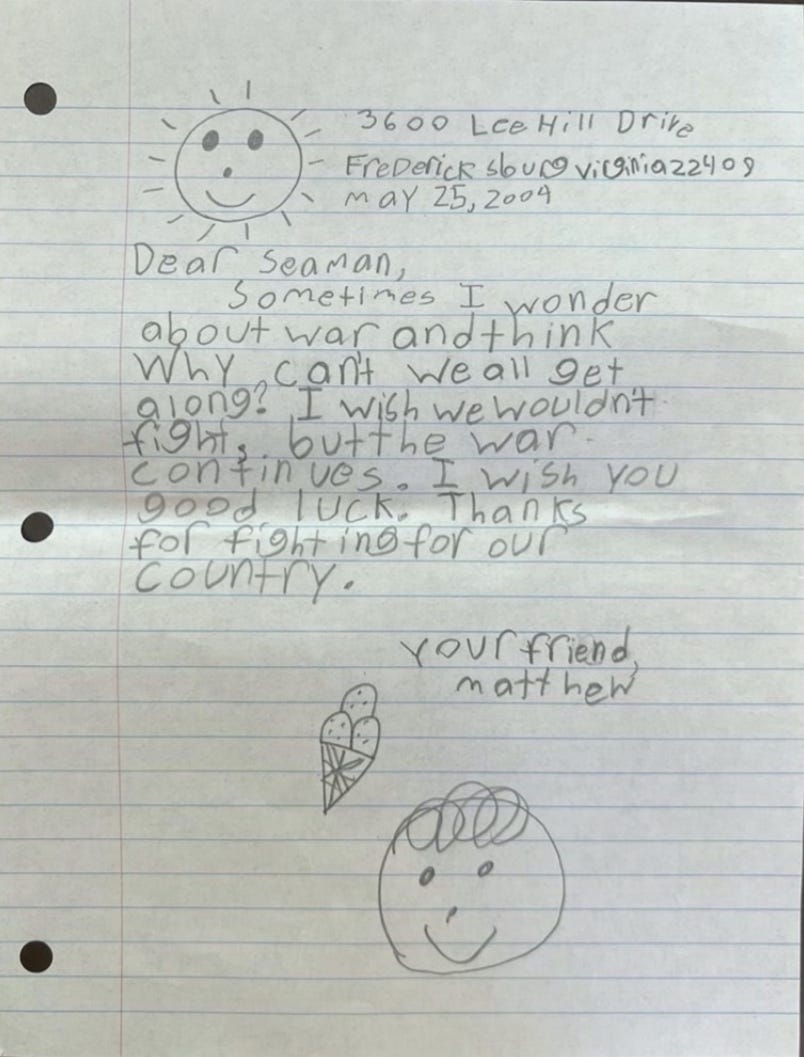 3600 Lee Hill Drive
FreDericksburg virginia 22408
may 25, 2004
Dear Seaman,
Sometimes I wonder
about war and think
Why can't we all get
along? I wish we wouldn't
fight, but the war
continues. I wish you
good luck. Thanks
for fighting for our
country.
your friend,
matthew